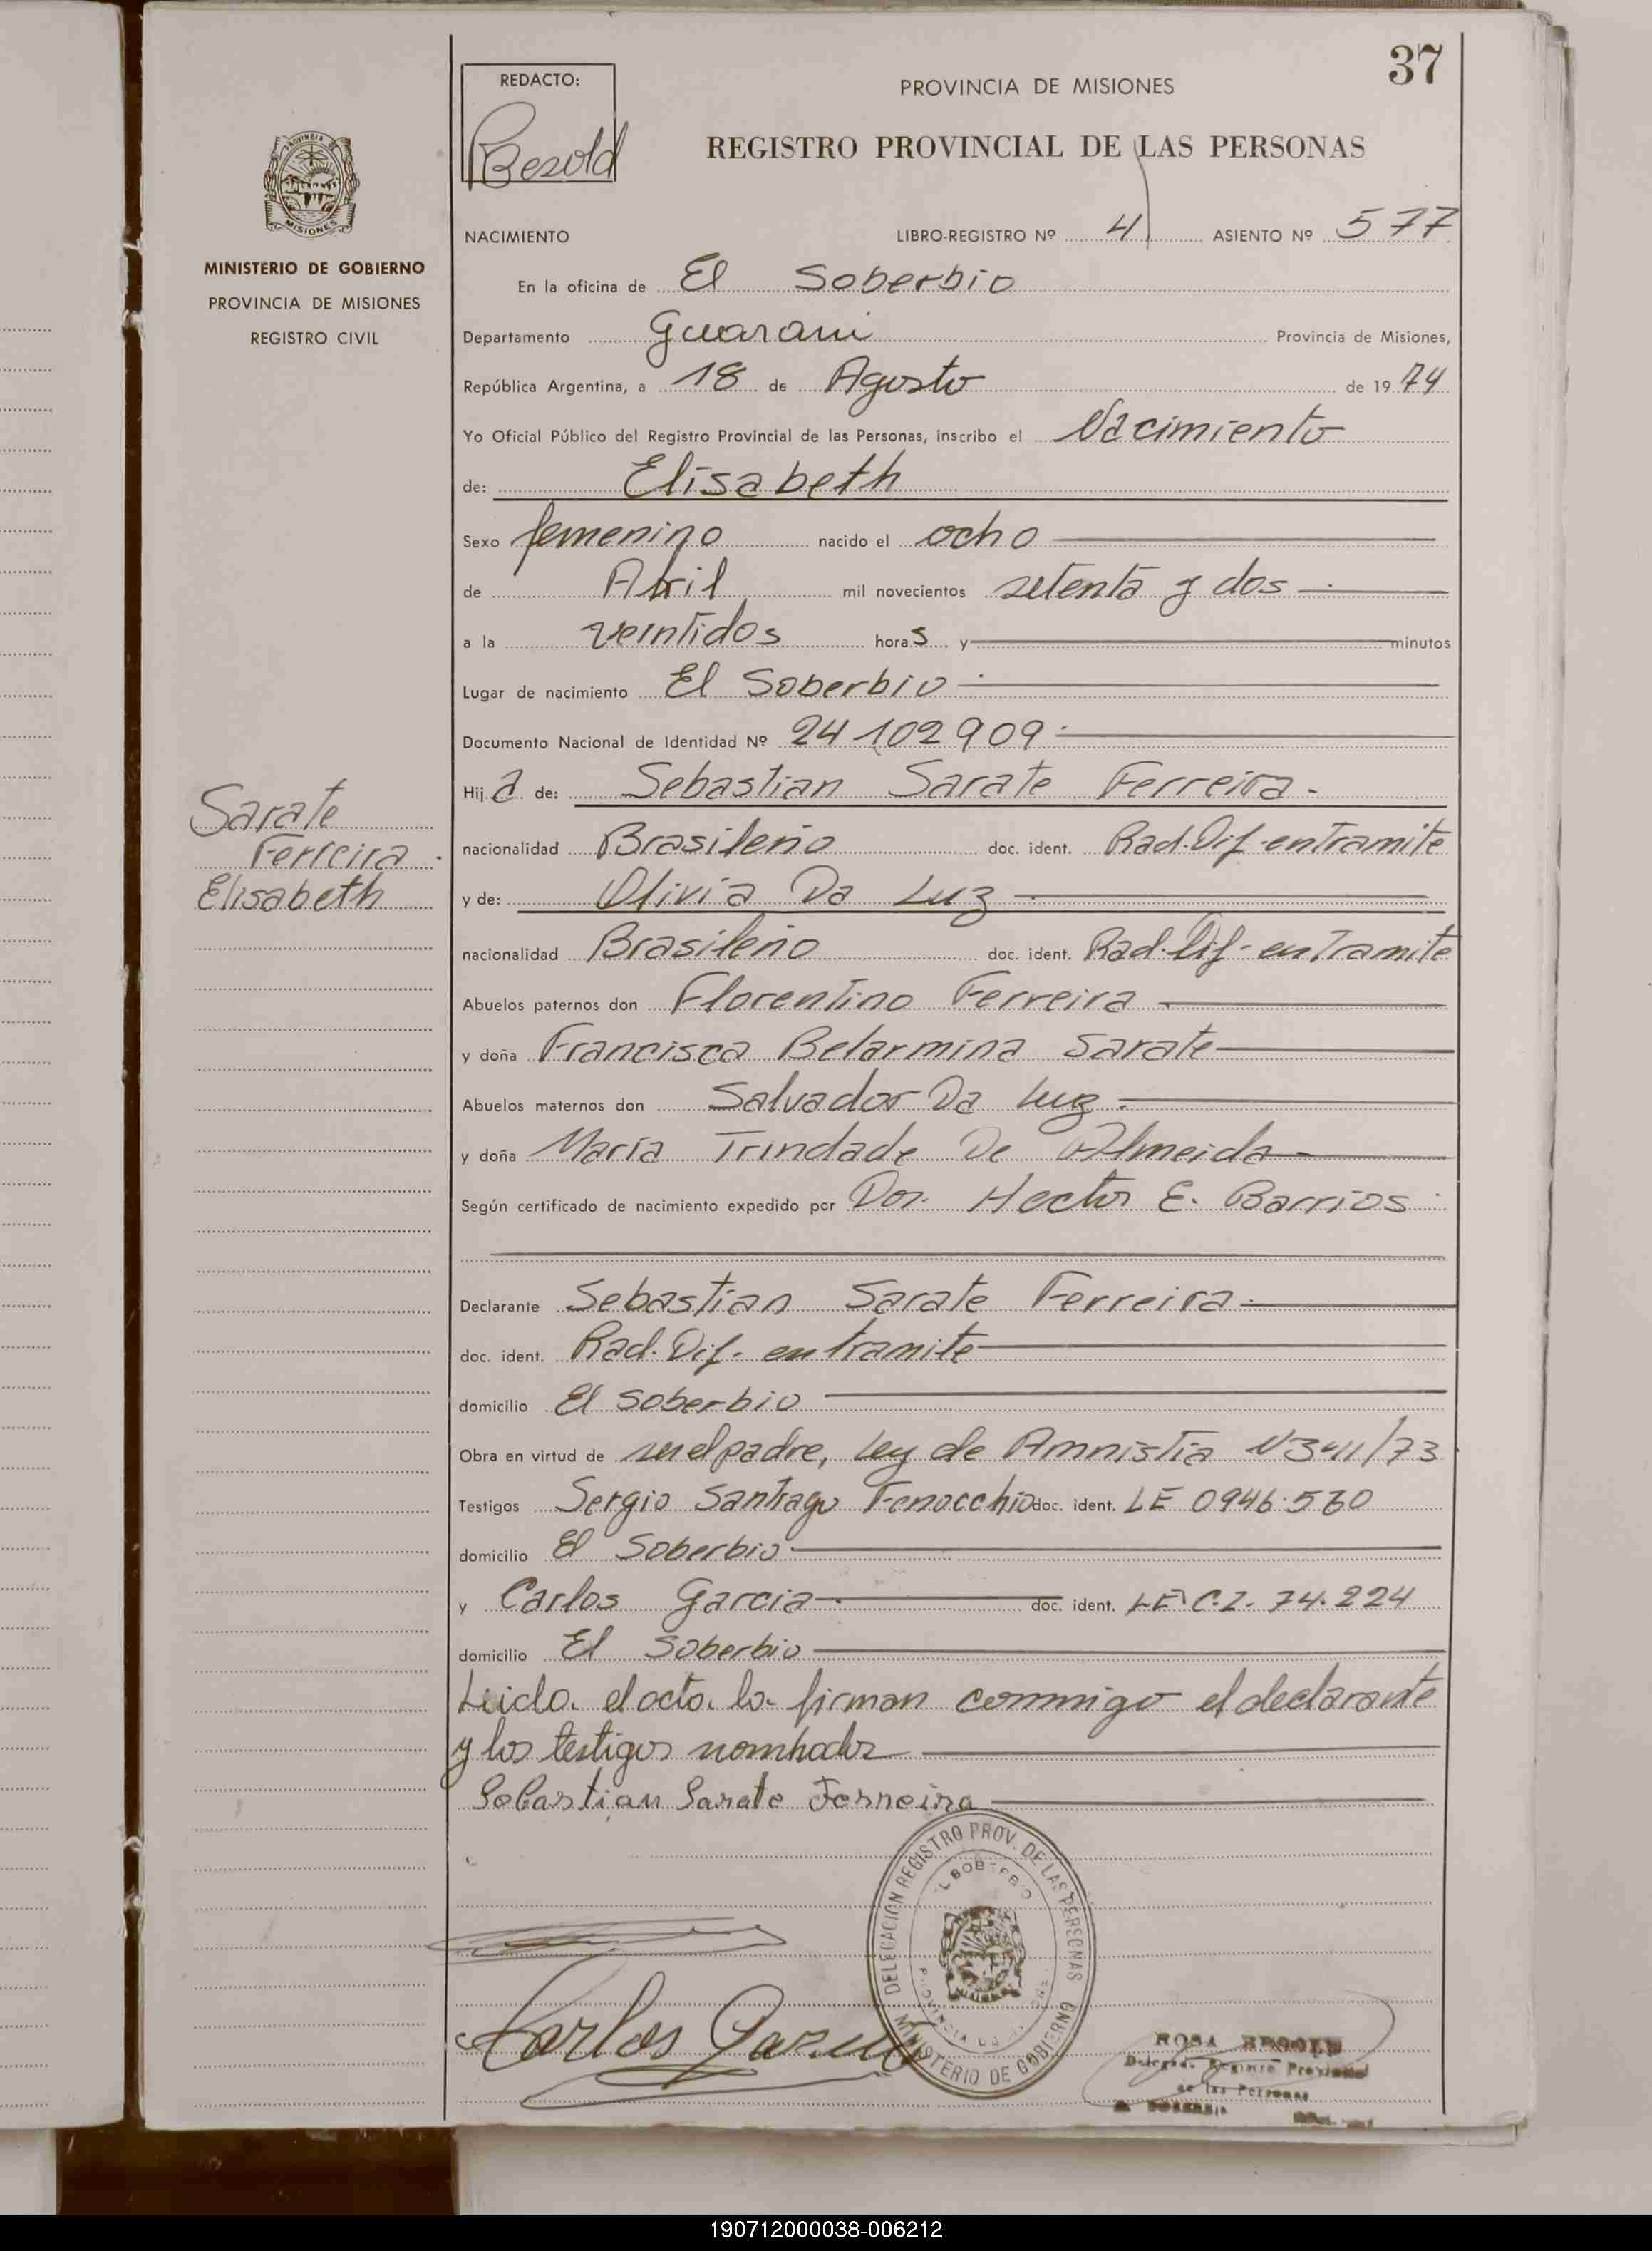 37
REDACTO:
Bezold
PROVINCIA DE MISIONES
REGISTRO PROVINCIAL DE LAS PERSONAS
PROVINCIA DE
MISIONES
MINISTERIO DE GOBIERNO
PROVINCIA DE MISIONES
REGISTRO CIVIL
NACIMIENTO LIBRO-REGISTRO Nº 4 ASIENTO Nº 577
En la oficina de El Soberbio
Departamento Guarani Provincia de Misiones,
República Argentina, a 18 de Agosto de 1974
Yo Oficial Público del Registro Provincial de las Personas, inscribo el Nacimiento
de: Elisabeth
Sexo femenino nacido el ocho
de Abril mil novecientos setenta y dos
a la veintidos horas y minutos
Lugar de nacimiento El Soberbio
Documento Nacional de Identidad Nº 24 102 909
Hija de: Sebastian Sarate Ferreira
Sarate
Ferreira
Elisabeth
nacionalidad Brasileño doc. ident. Rad. Dif. en Tramite
y de: Olivia Da Luz
nacionalidad Brasileño doc. ident. Rad. Dif. en Tramite
Abuelos paternos don Florentino Ferreira
y doña Francisca Belarmina Sarate
Abuelos maternos don Salvador Da Luz
y doña María Trindade De Almeida
Según certificado de nacimiento expedido por Dor. Hector E. Barrios
Declarante Sebastian Sarate Ferreira
doc. ident. Rad. Dif. en tramite
domicilio El Soberbio
Obra en virtud de ser el padre, Ley de Amnistia
Testigos Sergio Santiago Fenocchio doc. ident. LE 0946.530
domicilio El Soberbio
y Carlos Garcia doc. ident. LE C.I. 74.224
domicilio El Soberbio
Leida el acta la firman conmigo el declarante
y los testigos nombrados
Sebastian Sarate Ferreira
DELEGACION REGISTRO PROV. DE LAS PERSONAS
EL SOBERBIO
MINISTERIO DE GOBIERNO
Carlos Garcia
ROSA
Registro Provincial
de las Personas
190712000038-006212